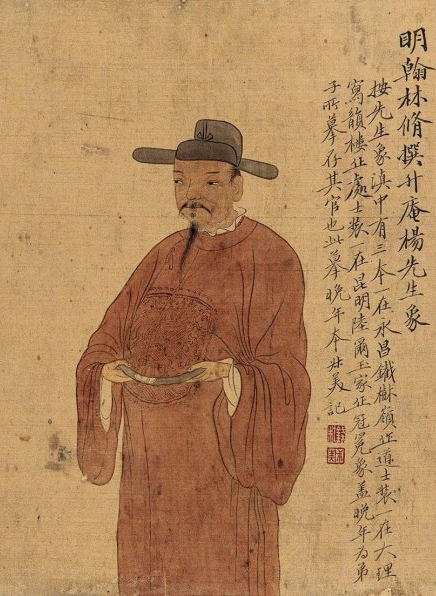 明翰林脩撰升庵楊先生象
按先生象滇中有三本一在永昌鐵樹嶺作道士裝一在大理
寫韻樓作處士裝一在昆明陸爾玉家作冠冕象蓋晚年為弟
子所摹存其官也此摹晚年本壯美記